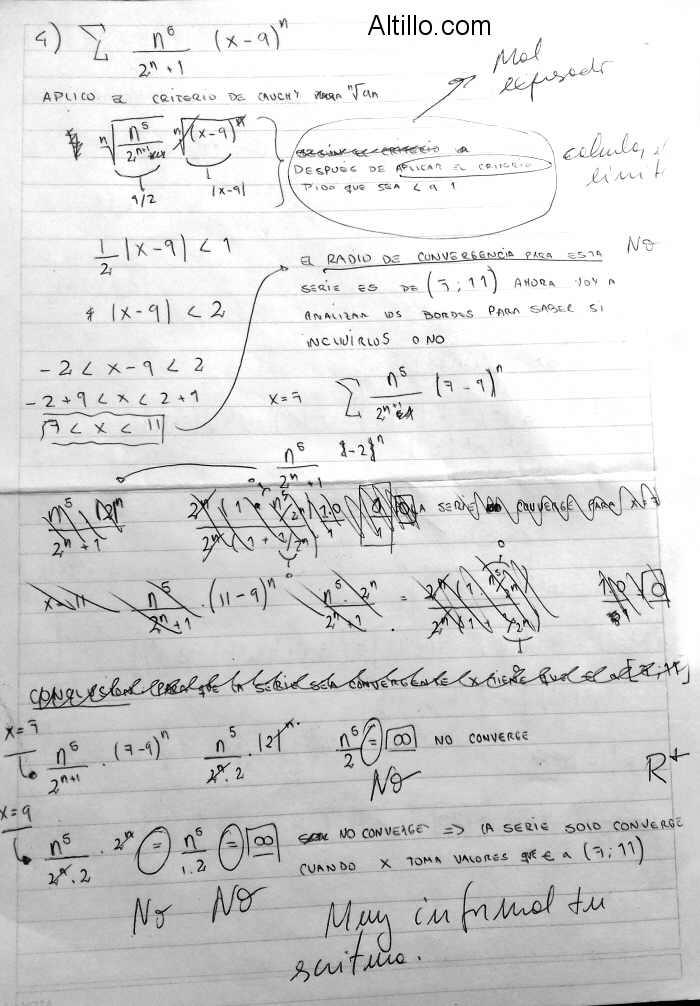 Altillo.com
4) ∑ n⁵/(2ⁿ+1) (x-9)ⁿ
Mal
expresado
APLICO EL CRITERIO DE CAUCHY ⁿ√an
ⁿ√(n⁵/2ⁿ⁺¹) ⁿ√(x-9)ⁿ
1/2 |x-9|
DESPUÉS DE APLICAR EL CRITERIO
PIDO QUE SEA < a 1
1/2 |x-9| < 1
|x-9| < 2
-2 < x-9 < 2
-2+9 < x < 2+9
7 < x < 11
EL RADIO DE CONVERGENCIA PARA ESTA NO
SERIE ES DE (7;11) AHORA VOY A
ANALIZAR LOS BORDES PARA SABER SI
INCLUIRLOS O NO
x=7 ∑ n⁵/2ⁿ⁺¹ (7-9)ⁿ
n⁵/(2ⁿ+1) |-2|ⁿ
n⁵/(2ⁿ+1) |2|ⁿ LA SERIE CONVERGE PARA x=7
x=11 n⁵/(2ⁿ+1) · (11-9)ⁿ n⁵·2ⁿ/(2ⁿ+1) =
CONCLUSION PARA QUE LA SERIE SEA CONVERGENTE x TIENE QUE [7;11]
x=7
n⁵/2ⁿ⁺¹ · (7-9)ⁿ n⁵/(2ⁿ·2) · |2|ⁿ n⁵/2 = ∞ NO CONVERGE
NO
R+
x=9
n⁵/(2ⁿ·2) · 2ⁿ = n⁵/(1·2) = ∞ NO CONVERGE => LA SERIE SOLO CONVERGE
CUANDO X TOMA VALORES QUE ∈ a (7;11)
No NO
Muy informal tu
escritura.